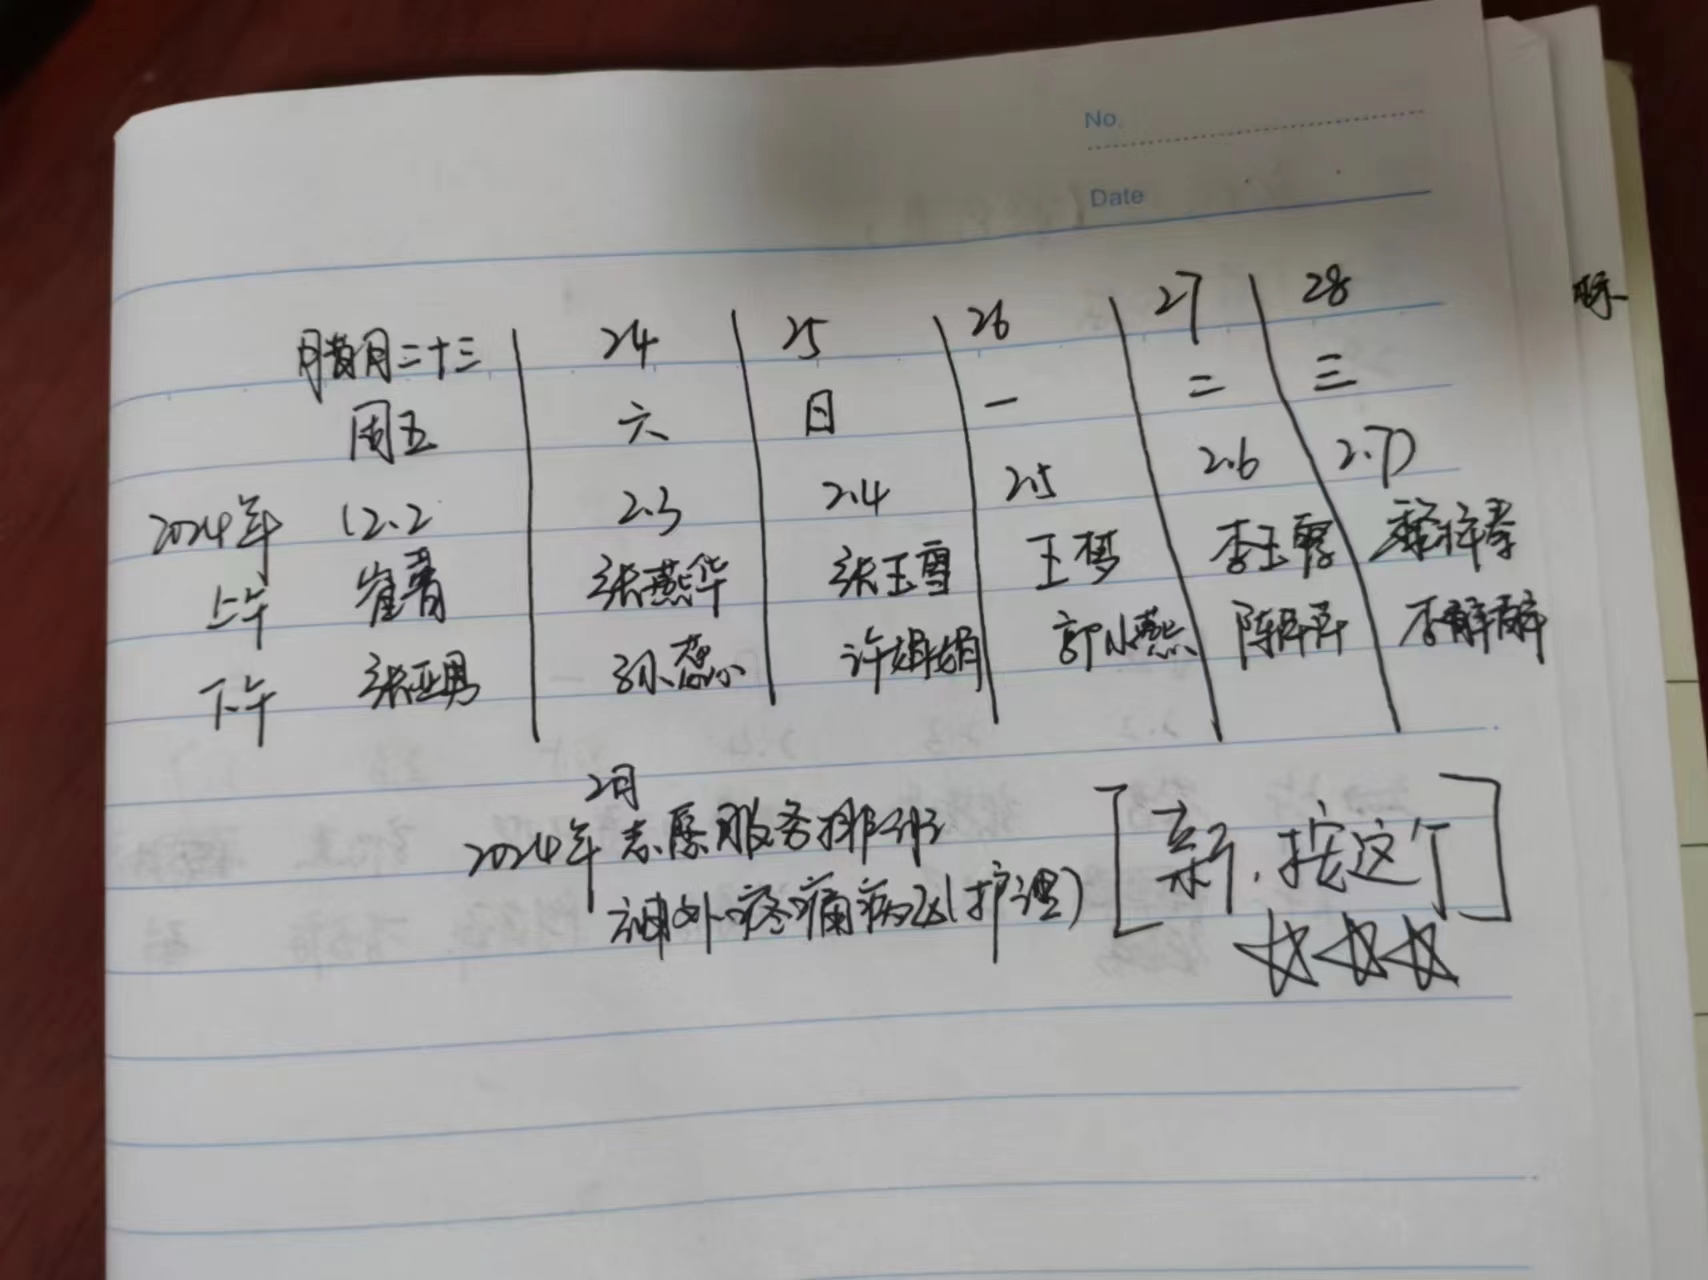 No.
Date
腊月二十三 24 25 26 27 28
周五 六 日 一 二 三
2024年 (2.2 2.3 2.4 2.5 2.6 2.7)
上午 崔青 张燕华 张玉雪 王梦 李玉雪
下午 张亚男 孙蕊 许娟娟 郭小燕 陈丹丹
2月
2024年志愿服务排班 [新,按这个]
神外疼痛病区(护理)